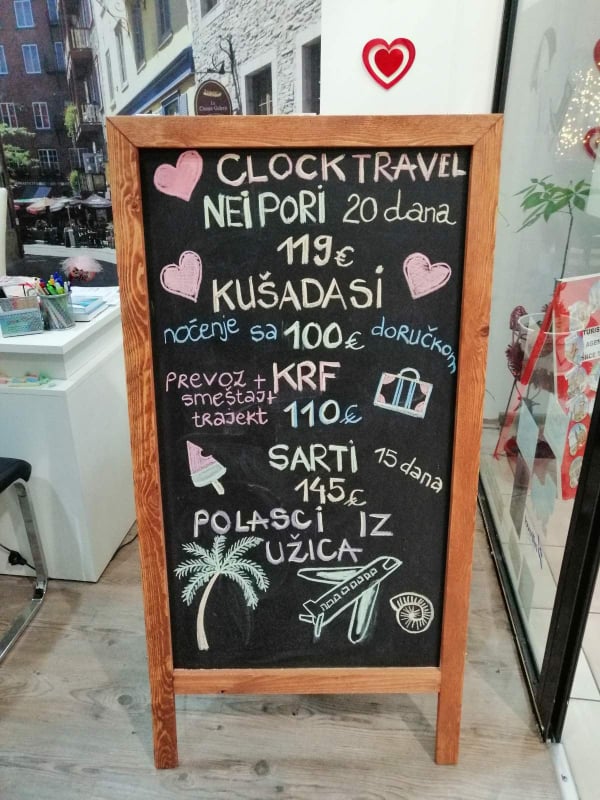 CLOCK TRAVEL
NEI PORI 20 dana
119€
KUŠADASI
noćenje sa 100€ doručkom
PREVOZ + KRF
smeštaj+
trajekt 110€
SARTI 15 dana
145€
POLASCI IZ
UŽICA